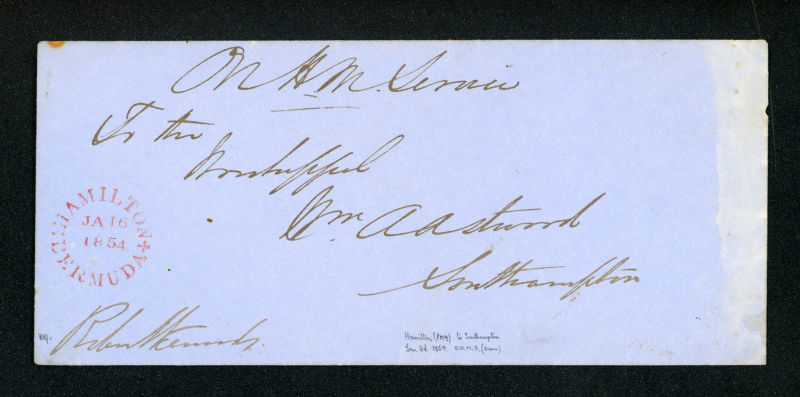 On H.M. Service
To the
Worshipful
Wm Aastwood
Southampton
HAMILTON
JA 16
1854
BERMUDA
Robert Kennedy
Hamilton, to Southampton
Jan 1854. O.H.M.S.